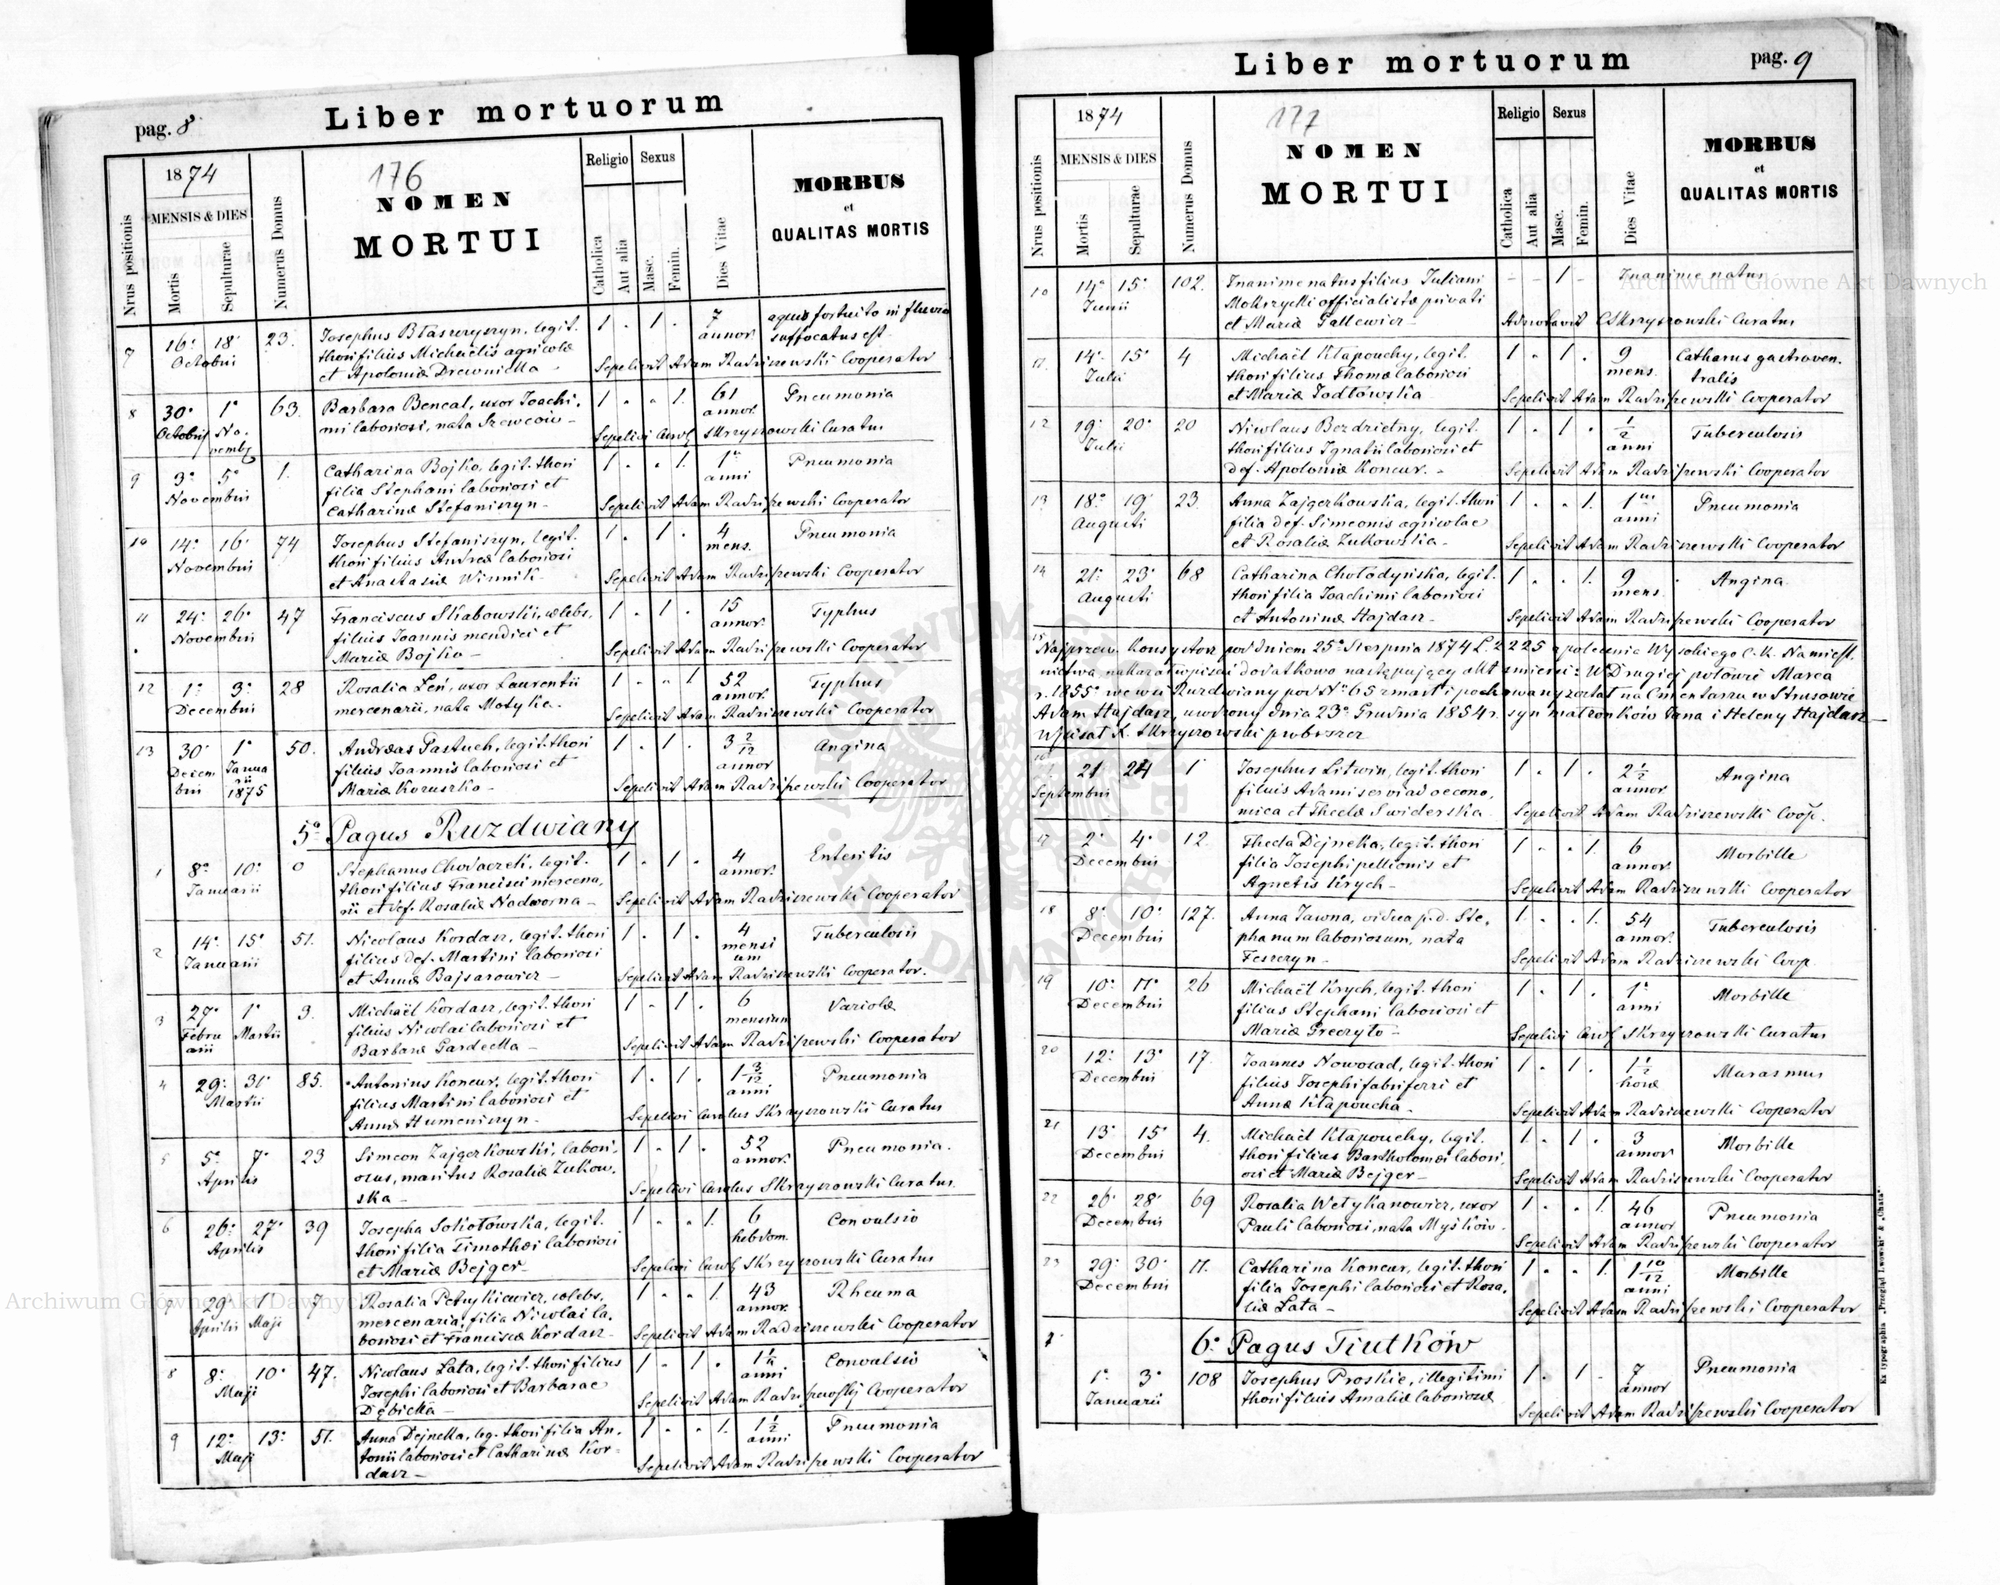 Liber mortuorum
pag. 8
176
1874
MENSIS & DIES
Nrus positionis
Mortis
Sepulturae
Numerus Domus
NOMEN
MORTUI
Religio
Sexus
Catholica
Aut alia
Masc.
Femin.
Dies Vitae
MORBUS
et
QUALITAS MORTIS
7 16a 18a 23. Josephus Błaszczyszyn, legit. 1 . 1 . 7 aquis fortuito in fluvio
Octobris thori filius Michaelis agricolæ annor. suffocatus est.
et Apoloniæ Drewnicka Sepelivit Adam Radziszewski Cooperator
8 30a 1a 63. Barbara Bencal, uxor Joachi- 1 . . 1. 61 Pneumonia
Octobris No- mi laboriosi, nata Szewców annor.
vembr. Sepelivi Carol Skrzyszowski Curatus
9 3a 5a 1. Catharina Bojko, legit. thori 1 . . 1. 1a Pneumonia
Novembris filia Stephani laboriosi et anni
Catharinæ Stefaniszyn Sepelivit Adam Radziszewski Cooperator
10 14a 16a 74 Josephus Stefaniszyn, legit. 1. . 1 . 4 Pneumonia
Novembris thori filius Andreæ laboriosi mens.
et Anastasiæ Winnik Sepelivit Adam Radziszewski Cooperator
11 24a 26a 47 Franciscus Skabowski, cœlebs, 1 . 1 . 15 Typhus
Novembris filius Joannis mendici et annor.
Mariæ Bojko Sepelivit Adam Radziszewski Cooperator
12 1a 3a 28 Rosalia Leń, uxor Laurentii 1 . . 1 52 Typhus
Decembris mercenarii, nata Motyka. annor.
Sepelivit Adam Radziszewski Cooperator
13 30a 1a 50. Andreas Pastuch, legit. thori 1 . 1 . 3 2/12 Angina
Decem Janua filius Joannis laboriosi et annor
bris rii 1875 Mariæ Koruszko Sepelivit Adam Radziszewski Cooperator
5a Pagus Ruzdwiany
1 8a 10a 0 Stephanus Chodaczek, legit. 1 . 1 . 4 Enteritis
Januarii thori filius Francisci mercena- annor.
rii et def. Rosaliæ Nadworna Sepelivit Adam Radziszewski Cooperator
2 14a 15a 51. Nicolaus Kordasz, legit. thori 1 . 1 . 4 Tuberculosis
Januarii filius def. Martini laboriosi mensi
et Annæ Bajsarowicz um
Sepelivit Adam Radziszewski Cooperator.
3 27a 1a 3. Michaël Kordasz, legit. thori 1 . 1 . 6 Variolæ
Febru Martii filius Nicolai laboriosi et mensium
arii Barbaræ Pardecka Sepelivit Adam Radziszewski Cooperator
4 29a 31a 85. Antonius Koncur, legit. thori 1 . 1 . 1 3/12 Pneumonia
Martii filius Martini laboriosi et anni
Annæ Humeniszyn Sepelivi Carolus Skrzyszowski Curatus
5 5a 7a 23 Simeon Zajgerkowski, labori- 1 . 1 . 52 Pneumonia.
Aprilis osus, maritus Rosaliæ Zukow- annor.
ska Sepelivi Carolus Skrzyszowski Curatus
6 26a 27a 39 Josepha Sokołowska, legit. 1 . . 1. 6 Convulsio
Aprilis thori filia Timothæi laboriosi hebdom.
et Mariæ Bejger Sepelivi Carol Skrzyszowski Curatus
7 29 1a 7 Rosalia Petrykiewicz, cœlebs, 1 . . 1. 43 Rheuma
Aprilis Maji mercenaria, filia Nicolai la- annor.
boriosi et Franciscæ Kordasz Sepelivit Adam Radziszewski Cooperator
8 8a 10a 47. Nicolaus Łata, legit. thori filius 1 . 1 . Convulsio
Maji Josephi laboriosi et Barbarae anni
Dębicka Sepelivit Adam Radziszewski Cooperator
9 12a 13a 51. Anna Dejneka, leg. thori filia An- 1 . . 1. 1 1/2 Pneumonia
Maji tonii laboriosi et Catharinæ Kor- anni
dasz Sepelivit Adam Radziszewski Cooperator
Liber mortuorum
pag. 9
177
1874
MENSIS & DIES
Nrus positionis
Mortis
Sepulturae
Numerus Domus
NOMEN
MORTUI
Religio
Sexus
Catholica
Aut alia
Masc.
Femin.
Dies Vitae
MORBUS
et
QUALITAS MORTIS
10 14a 15a 102. Inanime natus filius Juliani - - 1 - Inanime natus
Junii Mokrzycki officialistæ privati
et Mariæ Gallewicz Skrzyszowski Curatus
11. 14a 15a 4 Michaël Kłapouchy, legit. 1 . 1 . 9 Catharus gastroven-
Julii thori filius Thomæ laboriosi mens. tralis
et Mariæ Jodłowska Sepelivit Adam Radziszewski Cooperator
12 19a 20a 20 Nicolaus Bezdzietny, legit. 1 . 1 . 1/2 Tuberculosis
Julii thori filius Ignatii laboriosi et anni
def. Apoloniæ Koncur. Sepelivit Adam Radziszewski Cooperator
13 18a 19a 23. Anna Zajgerkowska, legit. thori 1 . . 1. 1 Pneumonia
Augusti filia def. Simeonis agricolae anni
et Rosaliæ Zukowska Sepelivit Adam Radziszewski Cooperator
14 21a 23a 68 Catharina Chołodyńska, legit. 1 . . 1. 9 Angina
Augusti thori filia Joachimi laboriosi mens.
et Antoninæ Hajdasz Sepelivit Adam Radziszewski Cooperator
15 Najprzew. Konsystorz pod dniem 25a Sierpnia 1874 L. 2225 z polecenia Wysokiego C. K. Namiest-
nictwa nakazał wpisać dodatkowo następujący akt śmierci: W Drugiej połowie Marca
r. 1855a we wsi Ruzdwiany pod No 65 zmarł i pochowany został na Cmentarzu w Strusowie
Adam Hajdasz, urodzony dnia 23a Grudnia 1854 r. syn małżonków Jana i Heleny Hajdasz
Wpisał X. Skrzyszowski proboszcz
16 21 24 1 Josephus Litwin, legit. thori 1 . 1 . 2 1/2 Angina
Septembris filius Adami servi ad oecono- annor.
mica et Theclæ Swiderska Sepelivit Adam Radziszewski Coop.
17 2a 4a 12. Thecla Dejneka, legit. thori 1 . . 1. 6 Morbille
Decembris filia Josephi pellionis et annor.
Agnetis Krych Sepelivit Adam Radziszewski Cooperator
18 8a 10a 127. Anna Jawna, vidua p. d. Ste- 1 . . 1. 54 Tuberculosis
Decembris phanum laboriosum, nata annor.
Feszczyn Sepelivit Adam Radziszewski Coop.
19 10a 11a 26 Michaël Krych, legit. thori 1 . 1 . 1a Morbille
Decembris filius Stephani laboriosi et anni
Mariæ Preczyto Sepelivi Carol Skrzyszowski Curatus
20 12a 13a 17. Joannes Nowosad, legit. thori 1 . 1 . 1 1/2 Marasmus
Decembris filius Josephi fabri ferri et horæ
Annæ Kłapoucha Sepelivit Adam Radziszewski Cooperator
21 13a 15a 4. Michaël Kłapouchy, legit. 1 . 1 . 3 Morbille
Decembris thori filius Bartholomæi labori- annor
osi et Mariæ Bejger Sepelivit Adam Radziszewski Cooperator
22 26a 28a 69 Rosalia Wetykanowicz, uxor 1 . . 1. 46 Pneumonia
Decembris Pauli laboriosi, nata Myśków. annor
Sepelivit Adam Radziszewski Cooperator
23 29a 30a 17. Catharina Koncur, legit. thori 1 . . 1. 1 10/12 Morbille
Decembris filia Josephi laboriosi et Rosa- anni
liæ Łata Sepelivit Adam Radziszewski Cooperator
6a Pagus Tiutków
1 1a 3a 108 Josephus Proskie, illegitimi 1 . 1 . 7 Pneumonia
Januarii thori filius Amaliæ laboriosæ annor
Sepelivit Adam Radziszewski Cooperator
Ex typographia „Przegląd Lwowski" & „Chata".
Archiwum Główne Akt Dawnych
Archiwum Główne Akt Dawnych
ARCHIWUM GŁÓWNE AKT DAWNYCH